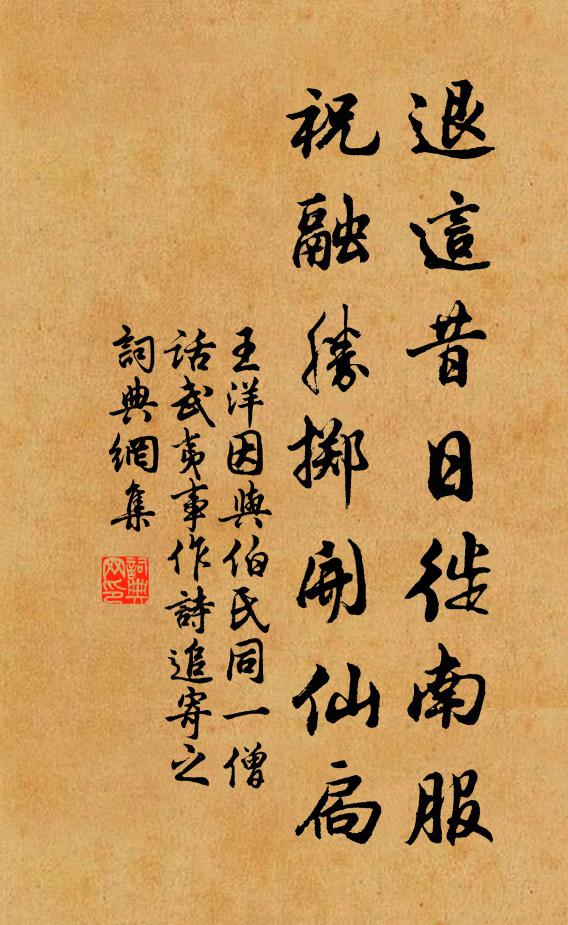 退這昔日徙南服
祝融勝擲開仙扃
王洋因與伯氏同一僧
話武夷事作詩追寄之
詞典網集
詞典网印